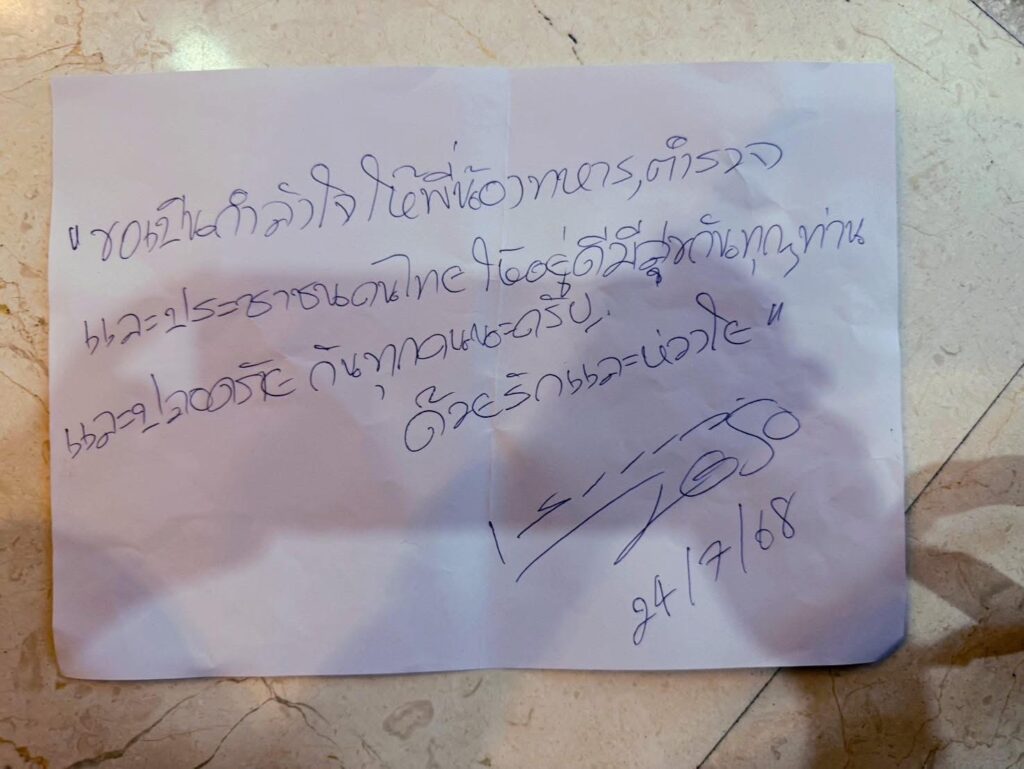 "ขอเป็นกำลังใจให้พี่น้องทหาร,ตำรวจ
และประชาชนคนไทย ให้อยู่ดีมีสุขกันทุกๆท่าน
และปลอดภัย กันทุกคนนะครับ
ด้วยรักและห่วงใย"
24/7/68